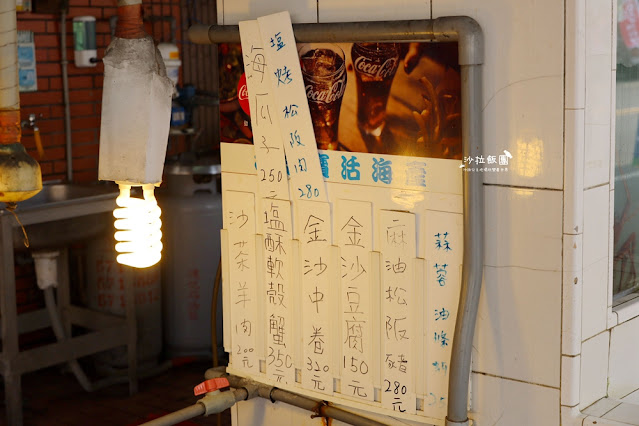 塩烤松阪肉 280
海瓜子 250元
活海
沙茶羊肉 200元
塩酥軟殼蟹 350元
金沙中卷 320元
金沙豆腐 150元
麻油松阪 280元
蒜蓉油條
Coca-Cola
Coca-Cola
沙拉飯團